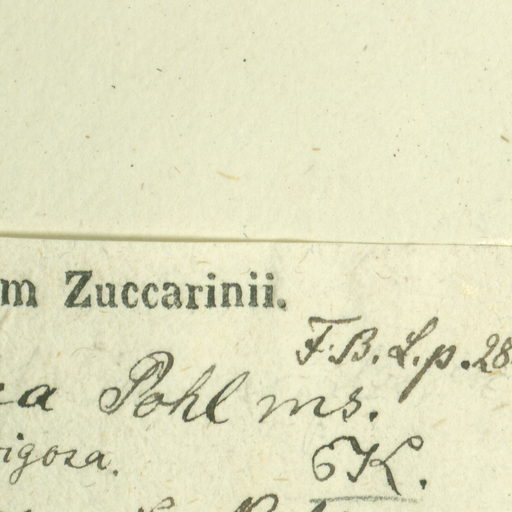 m Zuccarinii.
F. B. L. p. 28
a Pohl ms.
rigosa.
6K.